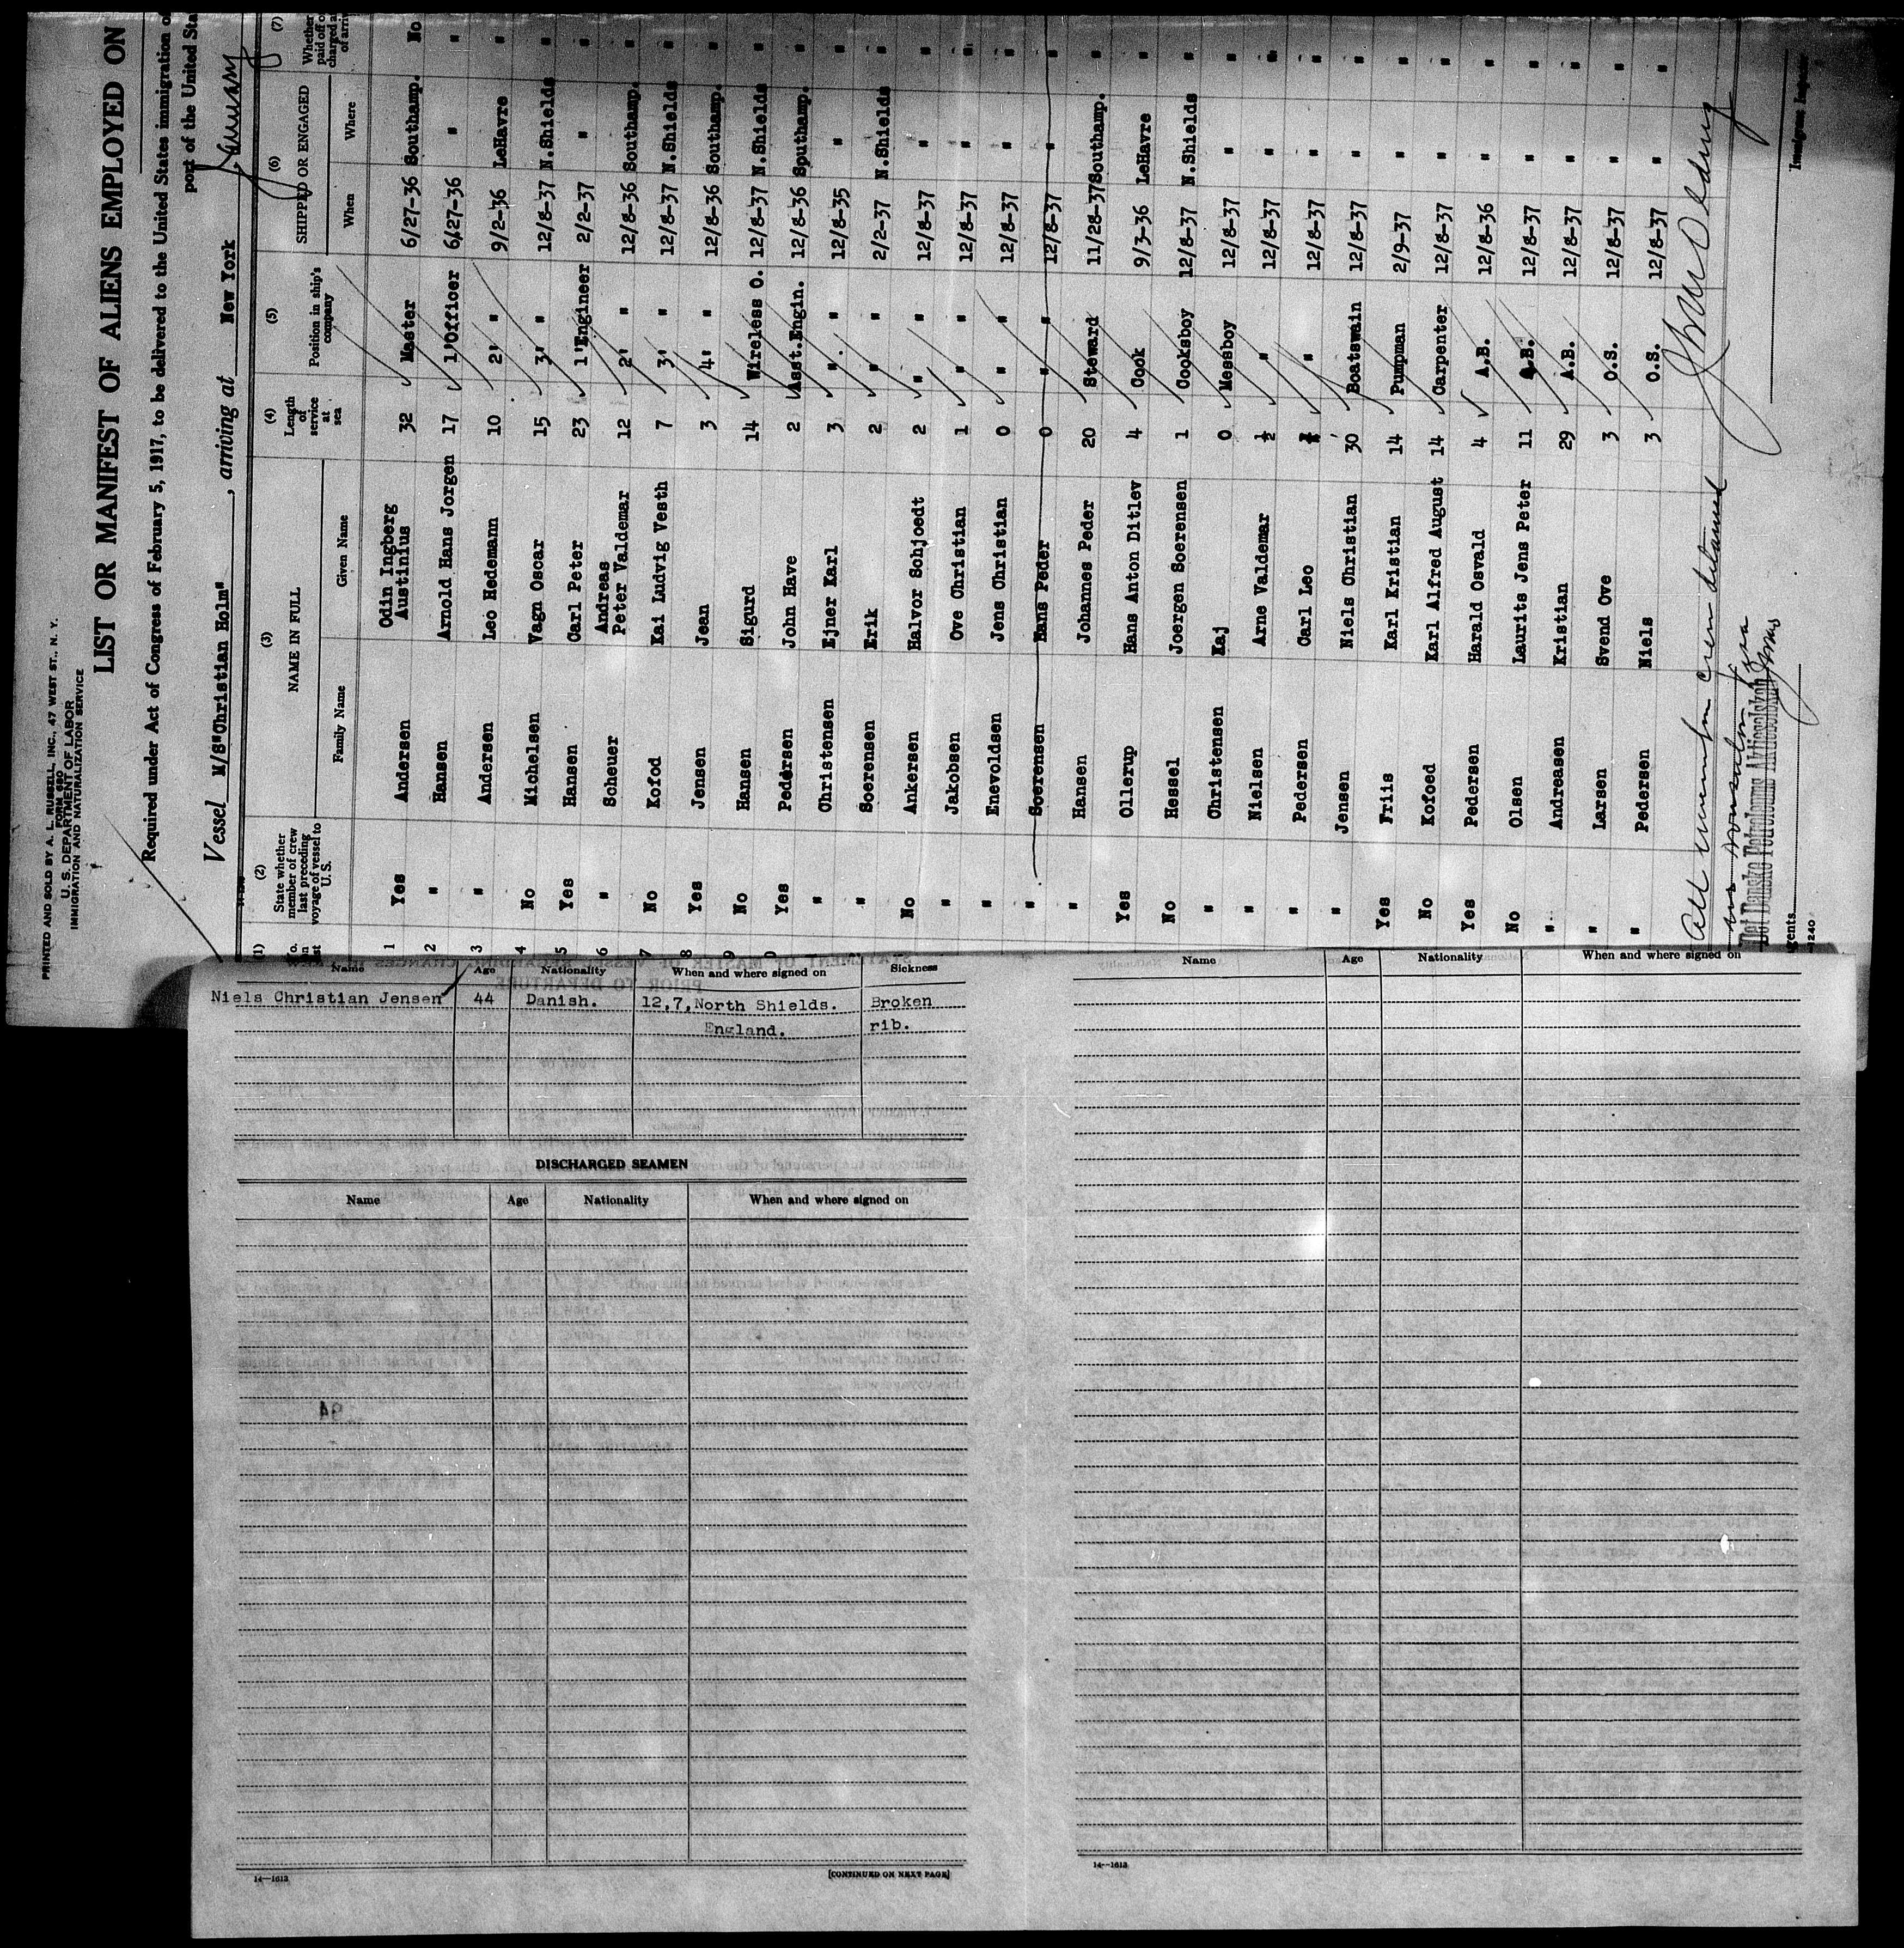 PRINTED AND SOLD BY A. L. RUSSELL, INC., 47 WEST ST., N. Y.
FORM 680
U. S. DEPARTMENT OF LABOR
IMMIGRATION AND NATURALIZATION SERVICE
LIST OR MANIFEST OF ALIENS EMPLOYED ON
Required under Act of Congress of February 5, 1917, to be delivered to the United States immigration
port of the United
Vessel M/S"Christian Holm" , arriving at New York
(1) (2) (3) (4) (5) (6) (7)
State whether member of crew last preceding voyage of vessel to U.S. NAME IN FULL Length of service at sea Position in ship's company SHIPPED OR ENGAGED Whether
Family Name Given Name When Where
1 Yes Andersen Odin Ingberg Austinius 32 Master 6/27-36 Southamp. No
2 " Hansen Arnold Hans Jorgen 17 1'Officer 6/27-36 " "
3 " Andersen Leo Hedemann 10 2' " 9/2-36 LeHavre "
4 No Michelsen Vagn Oscar 15 3' " 12/8-37 N.Shields "
5 Yes Hansen Carl Peter 23 1'Engineer 2/2-37 " "
6 " Scheuer Andreas Peter Valdemar 12 2' " 12/8-36 Southamp. "
7 No Kofod Kai Ludvig Vesth 7 3' " 12/8-37 N.Shields "
8 Yes Jensen Jean 3 4' " 12/8-36 Southamp. "
9 No Hansen Sigurd 14 Wireless O. 12/8-37 N.Shields "
0 Yes Pedersen John Have 2 Asst.Engin. 12/8-36 Southamp. "
" Christensen Ejner Karl 3 " " 12/8-35 " "
" Soerensen Erik 2 " " 2/2-37 N.Shields "
No Ankersen Halvor Schjoedt 2 " " 12/8-37 " "
" Jakobsen Ove Christian 1 " " 12/8-37 " "
" Enevoldsen Jens Christian 0 " " 12/8-37 " "
" Soerensen Hans Peder 0 " " 12/8-37 " "
" Hansen Johannes Peder 20 Steward 11/28-37 Southamp. "
Yes Ollerup Hans Anton Ditlev 4 Cook 9/3-36 LeHavre "
No Hessel Joergen Soerensen 1 Cooksboy 12/8-37 N.Shields "
" Christensen Kaj 0 Messboy 12/8-37 " "
" Nielsen Arne Valdemar ½ " 12/8-37 " "
" Pedersen Carl Leo " 12/8-37 " "
" Jensen Niels Christian 30 Boatswain 12/8-37 " "
Yes Friis Karl Kristian 14 Pumpman 2/9-37 " "
No Kofoed Karl Alfred August 14 Carpenter 12/8-37 " "
Yes Pedersen Harald Osvald 4 A.B. 12/8-36 " "
No Olsen Laurits Jens Peter 11 A.B. 12/8-37 " "
" Andreasen Kristian 29 A.B. 12/8-37 " "
" Larsen Svend Ove 3 O.S. 12/8-37 " "
" Pedersen Niels 3 O.S. 12/8-37 " "
Det Danske Petroleums Aktieselskab
Name Age Nationality When and where signed on Sickness
Niels Christian Jensen 44 Danish. 12,7,North Shields. Broken
England. rib.
DISCHARGED SEAMEN
Name Age Nationality When and where signed on
14—1613
[CONTINUED ON NEXT PAGE]
Name Age Nationality When and where signed on
14—1613